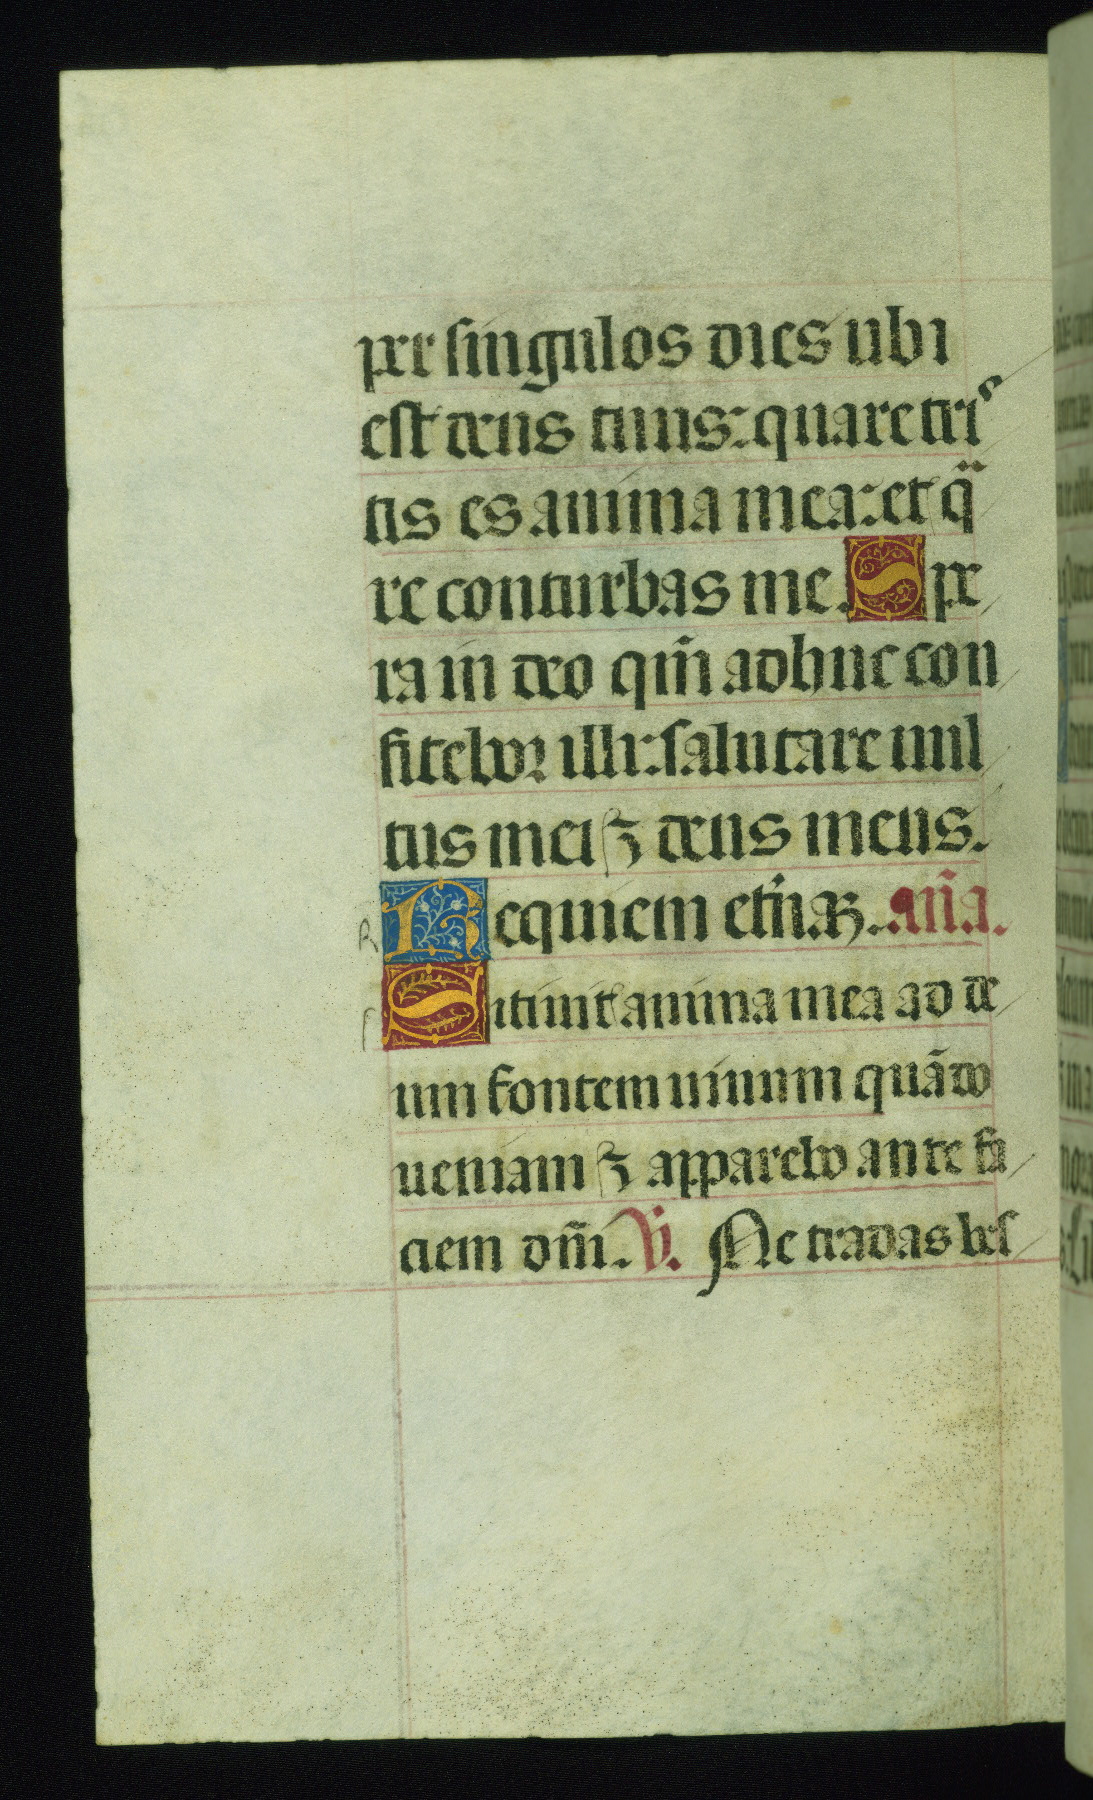 per singulos dies ubi
est deus tuus: quare tris
tis es anima mea: et qua
re conturbas me. Spe
ra in deo qm̄ adhuc con
fitebor illi: salutare uul
tus mei ⁊ deus meus.
Requiem etn̄aꝫ. an̄a.
Sitiuit anima mea ad de
um fontem uiuum quādo
ueniam ⁊ apparebo ante fa
ciem dn̄i. V̇. Ne tradas bes